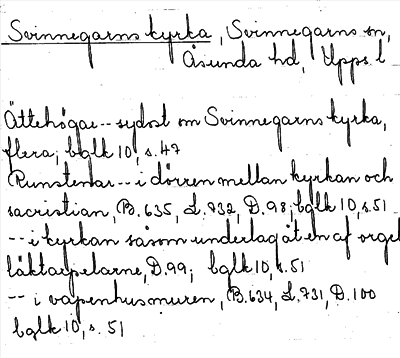 Svinnegarns kyrka, Svinnegarns sn,
Åsunda hd, Upps. l
Ättehögar -- sydost om Svinnegarns kyrka,
flera; bglk 10, s. 47
Runstenar -- i dörren mellan kyrkan och
sacristian, B. 635, L. 732, D. 98; bglk 10, s. 51
-- i kyrkan såsom underlag åt en af orgel
läktarpelarne, D. 99; bglk 10, s. 51
-- i vapenhusmuren, B. 634, L. 731, D. 100
bglk 10, s. 51